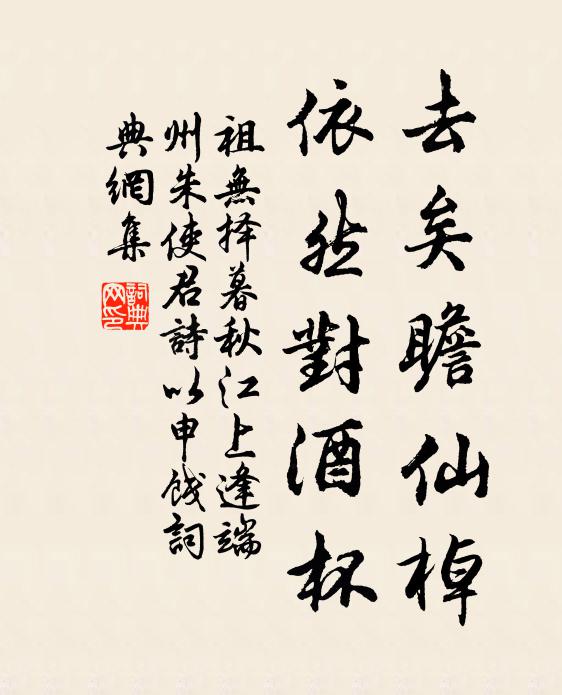 去矣瞻仙棹
依然對酒杯
祖無择暮秋江上逢端
州朱使君詩以申餞詞
典網集
詞典網印